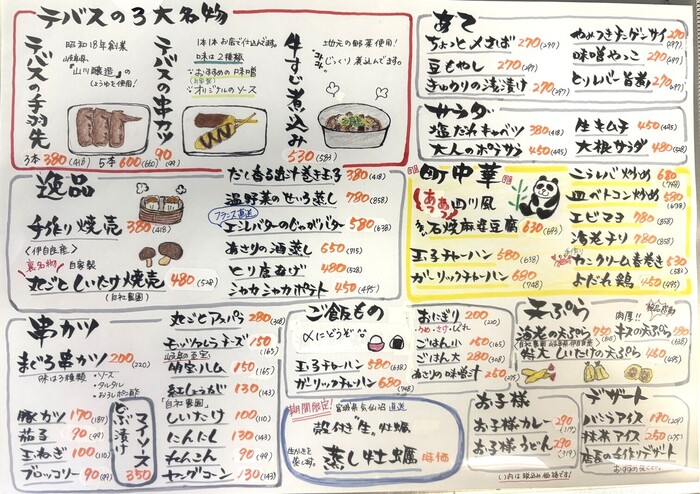 テバスの3大名物
テバスの手羽先
昭和18年創業
『山川醸造』の
しょうゆを使用!
3本 380(418) 5本 600(660)
テバスの串カツ
1本1本お店で仕込んでます。
味は2種類
・オリジナルのソース
90(99)
牛すじ煮込み
地元の野菜使用!
じっくり煮込んでます。
530(583)
あて
ちょっと〆さば 270(297)
豆もやし 270(297)
きゅうりの浅漬け 270(297)
味噌やっこ 270(297)
サラダ
塩だれキャベツ 380(418)
大人のポテサラ 450(495)
生ハムチ 450(495)
大根サラダ 480(528)
逸品
手作り焼売 380(418)
〈伊自良産〉
裏名物
自家製
丸ごとしいたけ焼売 480(528)
(自社農園)
だし香る出汁巻き玉子 380(418)
温野菜のせいろ蒸し 780(858)
フランス直送
エシレバターのじゃがバター 580(638)
あさりの酒蒸し 650(715)
とり唐あげ 480(528)
シャカシャカポテト 450(495)
町中華
四川風
石焼麻婆豆腐 630(693)
玉子チャーハン 580(638)
ガーリックチャーハン 680(748)
ニラレバ炒め 680(748)
皿ベトコン炒め 580(638)
エビマヨ 780(858)
海老チリ 780(858)
カニクリーム春巻き 530(583)
よだれ鶏 450(495)
串カツ
まぐろ串カツ 200(220)
味は3種類
・ソース
・タルタル
・おろしポン酢
豚カツ 170(187)
茄子 90(99)
玉ねぎ 100(110)
ブロッコリー 90(99)
どぶ漬け
マイソース
350
丸ごとアスパラ 280(308)
モッツァレラチーズ 150(165)
明宝ハム 150(165)
紅しょうが 130(143)
「自社農園」
しいたけ 100(110)
にんにく 130(143)
れんこん 90(99)
ヤングコーン 130(143)
ご飯もの
〆にどうぞ
玉子チャーハン 580(638)
ガーリックチャーハン 680(748)
おにぎり 200(220)
・うめ・さけ・しぐれ
ごはん小 150(165)
ごはん大 280(308)
あさりの味噌汁 250(275)
天ぷら
海老の天ぷら
肉厚!!
キスの天ぷら
特大しいたけの天ぷら 450(495)
期間限定!
宮城県気仙沼直送
殻付き"生"牡蠣
蒸し牡蠣 時価
お子様
お子様カレー 290(319)
お子様うどん 290(319)
デザート
抹茶アイス 250(275)
店長の手作りデザート
( )内は税込み価格です!